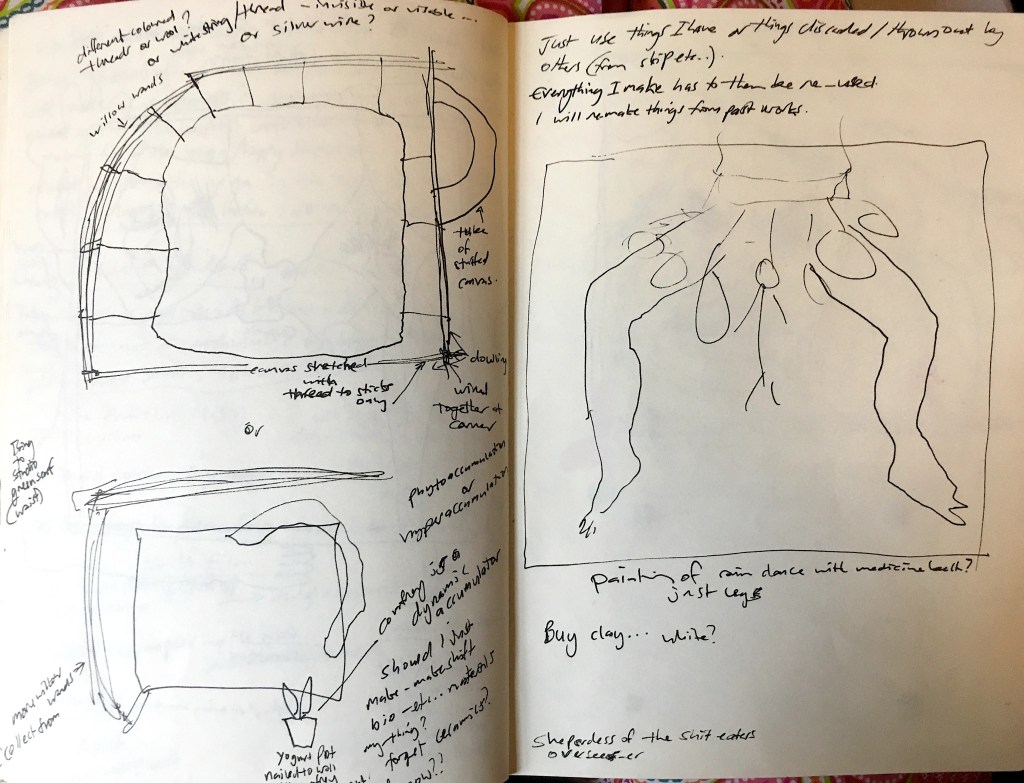 different coloured?
threads or wool?
or
white string/thread - invisible or visible...
or silver wire?
willow wands
tube
of
stuffed
canvas.
canvas stretched
with
thread to sticks
only
dowling
wired
together at
corner
or
Bring
to
studio
green scarf
(waist)
phytoaccumulation
or
hyperaccumulation
comfrey is a
dynamic
accumulator
should I just
make - makeshift
bio - etc.. materials
anything?
forget ceramics?
more willow
wands
collect from
yogurt pot
nailed to wall
Just use things I have or things discarded/thrown out by
others (from skip etc..).
Everything I make has to then be re-used.
I will remake things from past works.
painting of rain dance with medicine belt?
just legs
Buy clay... white?
Sheperdess of the shit eaters
overseer